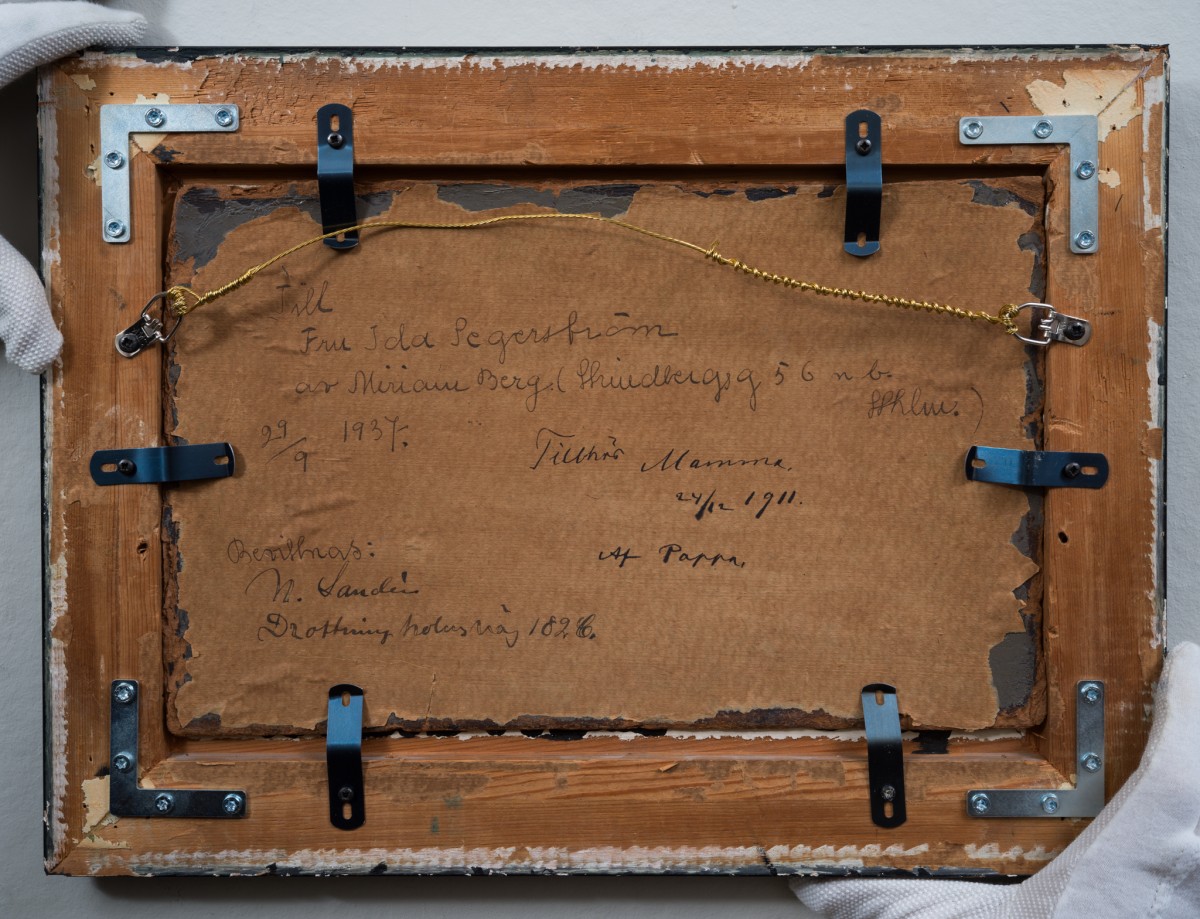 Till
Fru Ida Segerström
av Miriam Berg. (Strindbergsg 56 n b.
Sthlm.)
29/9 1937.
Tillhör Mamma.
24/12 1911.
Af Pappa.
Bevittnas:
N. Sandin
Drottningholmsväg